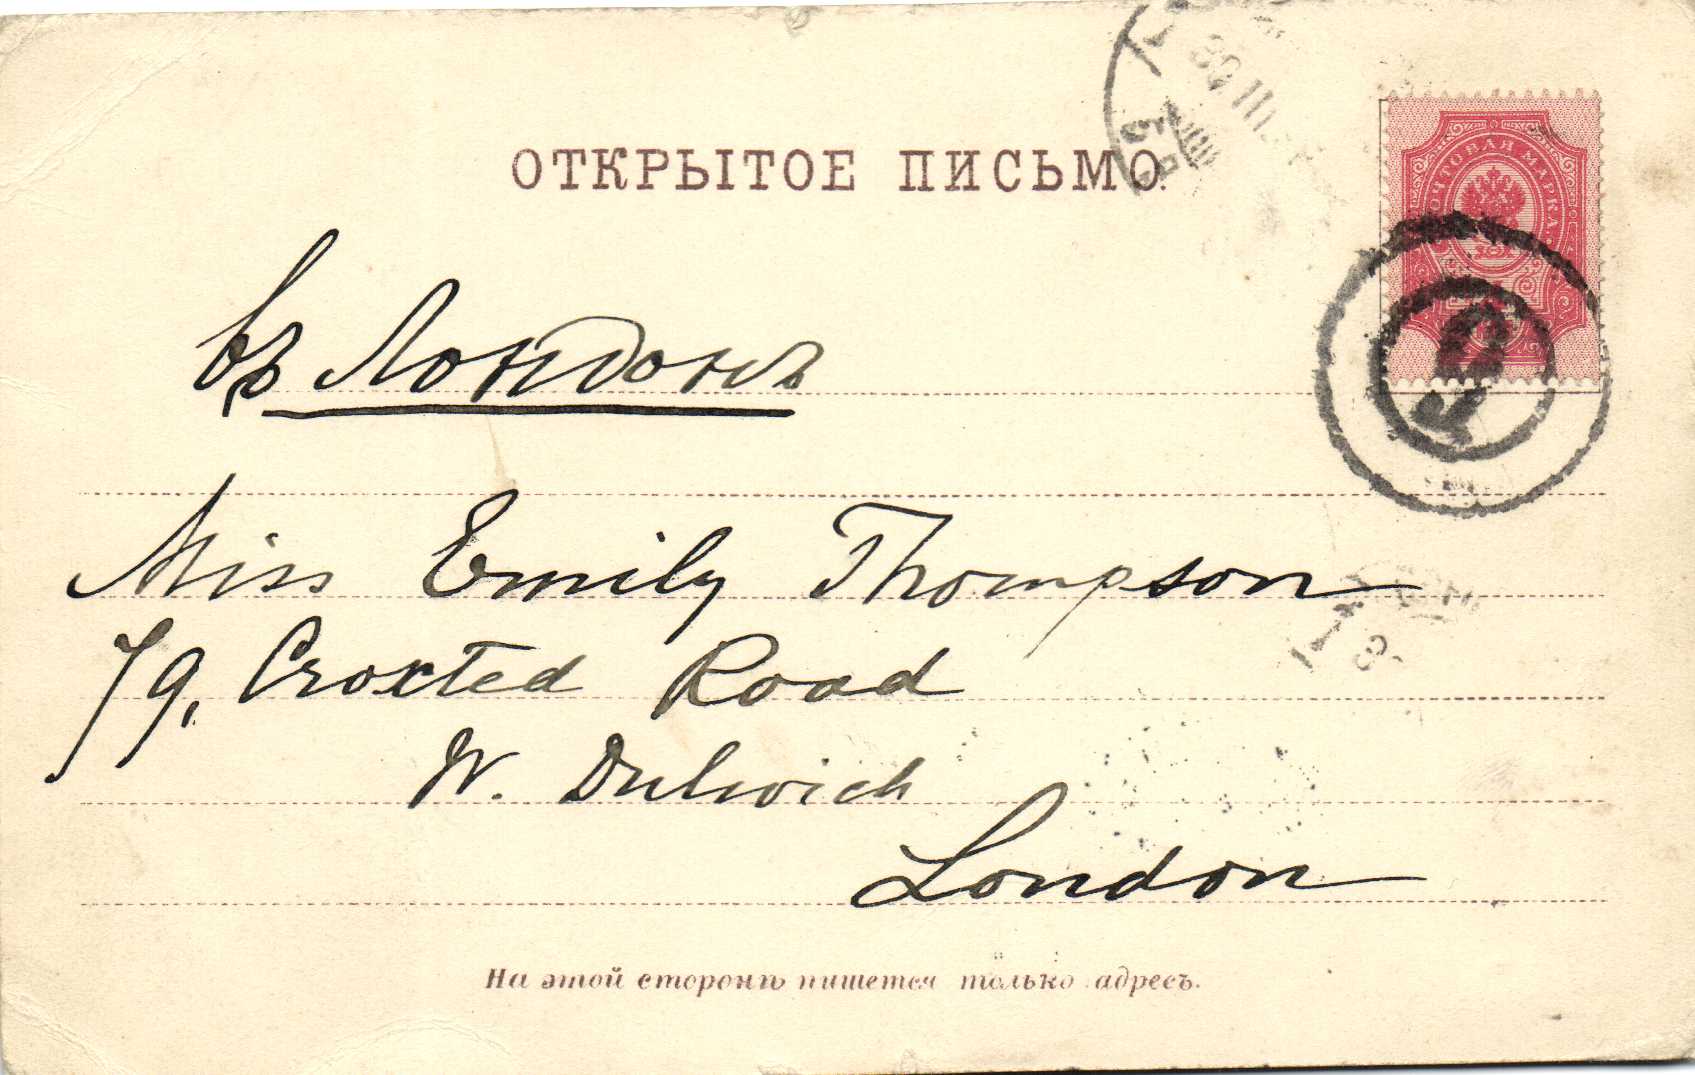 ОТКРЫТОЕ ПИСЬМО.
ПОЧТОВАЯ МАРКА.
въ Лондонъ
Miss Emily Thompson
79, Croxted Road
W. Dulwich
London
На этой сторонѣ пишется только адресъ.